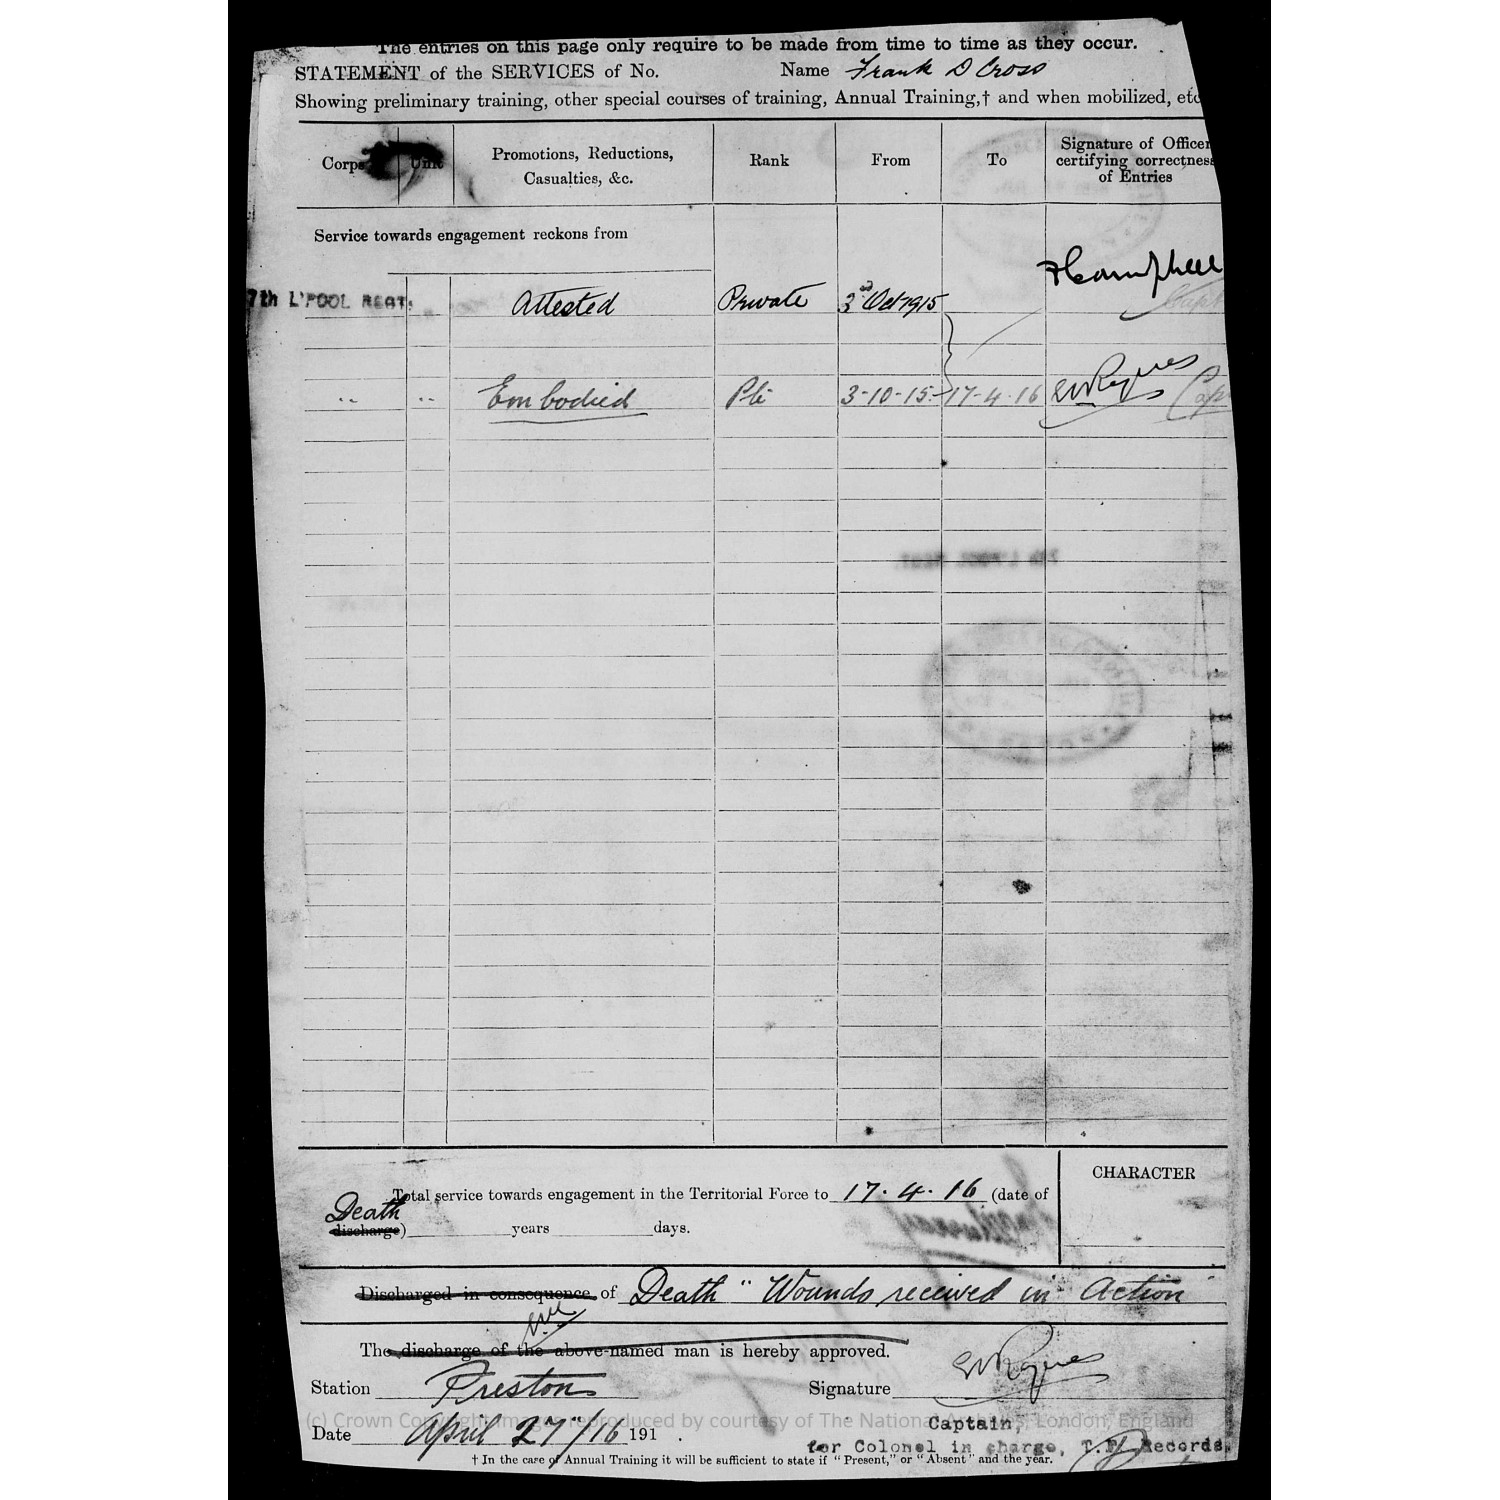 The entries on this page only require to be made from time to time as they occur.
STATEMENT of the SERVICES of No. Name Frank D Cross
Showing preliminary training, other special courses of training, Annual Training,† and when mobilized, etc
Corps Unit Promotions, Reductions, Casualties, &c. Rank From To Signature of Officer certifying correctness of Entries
Service towards engagement reckons from
7th L'POOL REGT. Attested Private 3rd Oct 1915 Campbell Capt
" " Embodied Pte 3-10-15 17-4-16 Capt
7th L'POOL REGT.
Total service towards engagement in the Territorial Force to 17.4.16 (date of
Death
discharge) years days.
CHARACTER
Discharged in consequence of Death "Wounds received in Action
The discharge of the above-named man is hereby approved.
Station Preston Signature
(c) Crown Copyright Image reproduced by courtesy of The National Archives, London, England
Date April 27/16 191 . Captain,
for Colonel in charge, T.F. Records,
† In the case of Annual Training it will be sufficient to state if "Present," or "Absent" and the year.